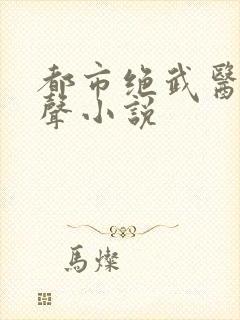 都市绝武醫
聲小説
馬燦